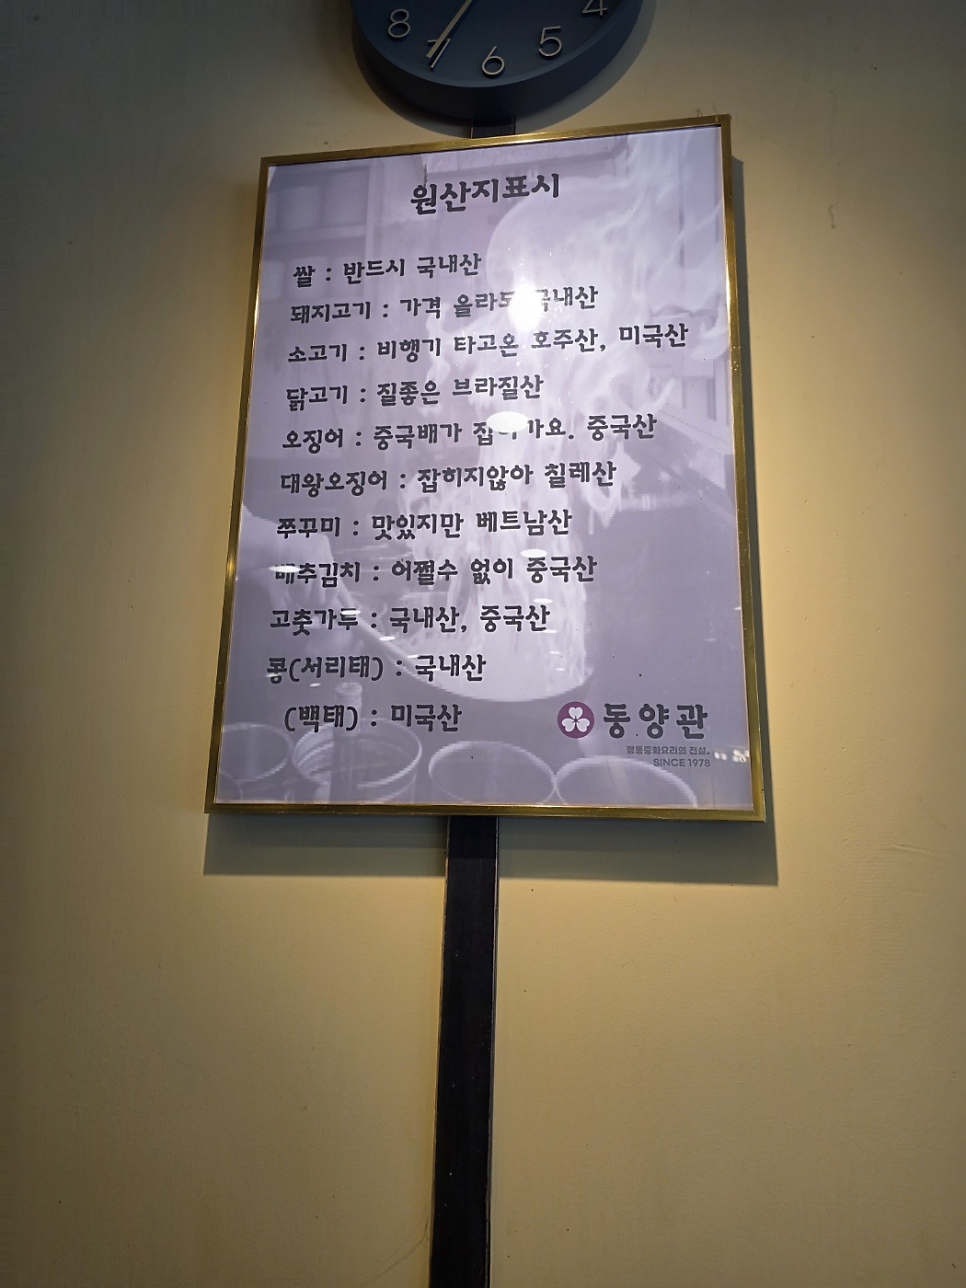 8 7 6 5 4
원산지표시
쌀 : 반드시 국내산
돼지고기 : 가격 올라도 국내산
소고기 : 비행기 타고온 호주산, 미국산
닭고기 : 질좋은 브라질산
오징어 : 중국배가 가요. 중국산
대왕오징어 : 잡히지않아 칠레산
쭈꾸미 : 맛있지만 베트남산
배추김치 : 어쩔수 없이 중국산
고춧가루 : 국내산, 중국산
콩(서리태) : 국내산
(백태) : 미국산
동양관
정통중화요리의 전설.
SINCE 1978